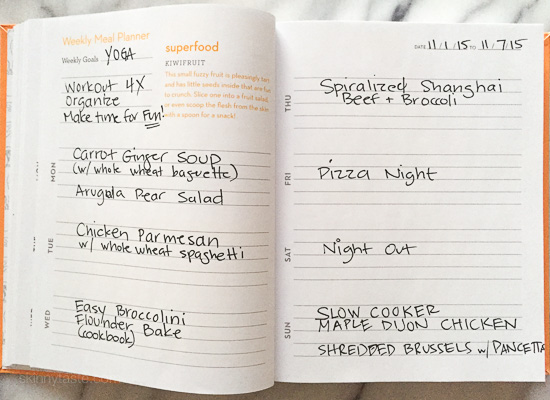 Weekly Meal Planner
Weekly Goals YOGA
Workout 4X
Organize
Make time for Fun!
superfood
KIWIFRUIT
This small fuzzy fruit is pleasingly tart
and has little seeds inside that are fun
to crunch. Slice one into a fruit salad,
or even scoop the flesh from the skin
with a spoon for a snack!
MON
Carrot Ginger Soup
(w/ whole wheat baguette)
Arugula Pear Salad
TUE
Chicken Parmesan
w/ whole wheat spaghetti
WED
Easy Broccolini
Flounder Bake
(cookbook)
skinnytaste.com
DATE 11/1/15 TO 11/7/15
THU
Spiralized Shanghai
Beef + Broccoli
FRI
Pizza Night
SAT
Night Out
SUN
SLOW COOKER
MAPLE DIJON CHICKEN
SHREDDED BRUSSELS w/ PANCETTA